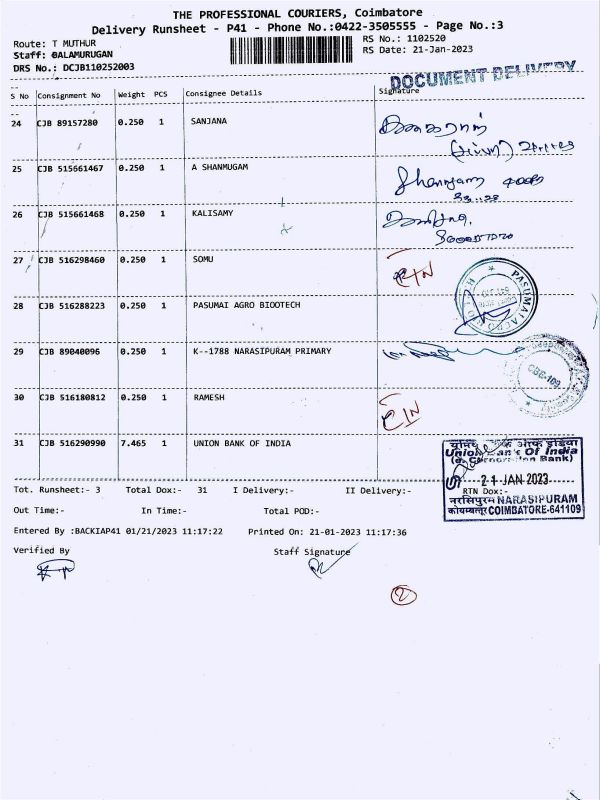 THE PROFESSIONAL COURIERS, Coimbatore
Delivery Runsheet - P41 - Phone No.:0422-3505555 - Page No.:3
Route: T MUTHUR
RS No.: 1102520
Staff: BALAMURUGAN
RS Date: 21-Jan-2023
DRS No.: DCJB110252003
DOCUMENT DELIVERY
S No Consignment No Weight PCS Consignee Details Signature
24 CJB 89157280 0.250 1 SANJANA
25 CJB 515661467 0.250 1 A SHANMUGAM
Shanmugam
26 CJB 515661468 0.250 1 KALISAMY
27 CJB 516298460 0.250 1 SOMU
28 CJB 516288223 0.250 1 PASUMAI AGRO BIOOTECH
29 CJB 89040096 0.250 1 K--1788 NARASIPURAM PRIMARY
CBE-109
30 CJB 516180812 0.250 1 RAMESH
31 CJB 516290990 7.465 1 UNION BANK OF INDIA
Union Bank Of India
(e. Corporation Bank)
21 JAN 2023
नरसिपुरम NARASIPURAM
कोयम्बत्तूर COIMBATORE-641109
Tot. Runsheet:- 3 Total Dox:- 31 I Delivery:- II Delivery:- RTN Dox:-
Out Time:- In Time:- Total POD:-
Entered By :BACKIAP41 01/21/2023 11:17:22 Printed On: 21-01-2023 11:17:36
Verified By Staff Signature
2